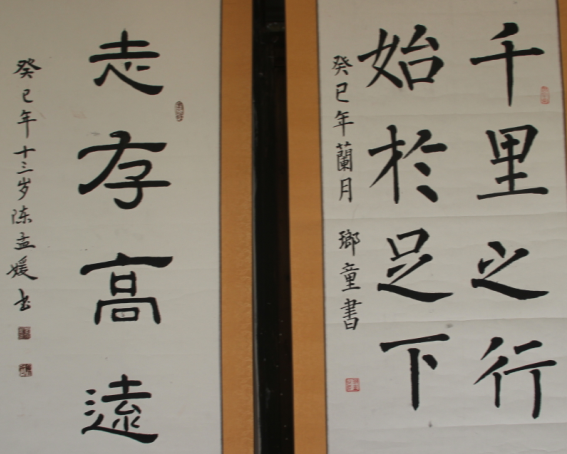 千里之行
始於足下
癸巳年蘭月 瑯童書
志存高遠
癸巳年十三岁陈孟媛书